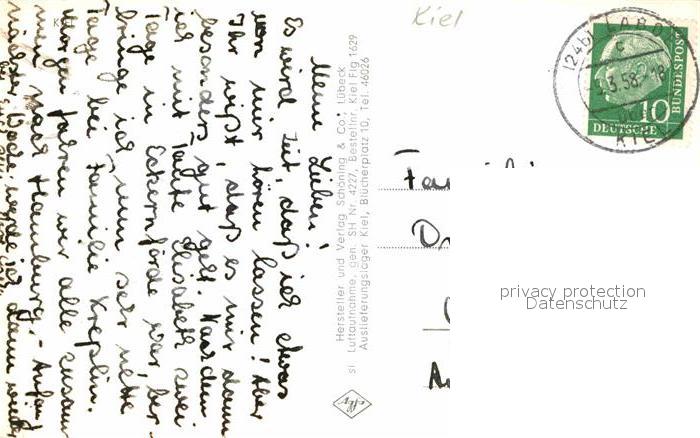 Kiel
Meine Lieben!
Es wird Zeit, daß ich etwas
von mir hören lassen! Aber
Ihr wißt, daß es mir dann
besonders gut geht. Nachdem
ich mit Tante Elisabeth zwei
Tage in Eckernförde war, ver-
bringe ich nun sehr nette
Tage bei Familie Kreplin.
Morgen fahren wir alle zusam
men nach Hamburg. - Anfang
nächster Woche werde ich dann wieder
Hersteller und Verlag Schöning & Co., Lübeck
SI Luftaufnahme, gen. SH Nr. 4227, Bestellnr. Kiel Flg 1629
Auslieferungslager Kiel, Blücherplatz 10, Tel. 46026
(24b) LABOE
c
3.58.-18
KIEL
10
DEUTSCHE
BUNDESPOST
Fa
D
A
privacy protection
Datenschutz